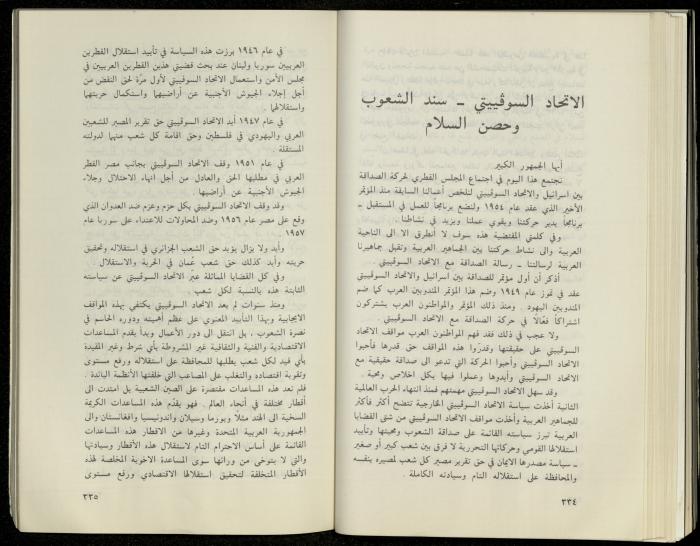 الاتحاد السوڤييتي ـ سند الشعوب
وحصن السلام
أيها الجمهور الكبير
نجتمع هذا اليوم في اجتماع المجلس القطري لحركة الصداقة
بين اسرائيل والاتحاد السوڤييتي لنلخص أعمالنا السابقة منذ المؤتمر
الأخير الذي عقد عام ١٩٥٤ ولنضع برنامجاً للعمل في المستقبل ـ
برنامجاً يدير حركتنا ويقوي عملنا ويزيد في نشاطنا .
وفي كلمتي المقتضبة هذه سوف لا أتطرق الا الى الناحية
العربية والى نشاط حركتنا بين الجماهير العربية وتقبل جماهيرنا
العربية لرسالتنا ـ رسالة الصداقة مع الاتحاد السوڤييتي .
أذكر أن أول مؤتمر للصداقة بين اسرائيل والاتحاد السوڤييتي
عقد في تموز عام ١٩٤٩ وضم هذا المؤتمر المندوبين العرب كما ضم
المندوبين اليهود . ومنذ ذلك المؤتمر والمواطنون العرب يشتركون
اشتراكاً فعّالاً في حركة الصداقة مع الاتحاد السوڤييتي .
ولا عجب في ذلك فقد فهم المواطنون العرب مواقف الاتحاد
السوڤييتي على حقيقتها وقدّروا هذه المواقف حق قدرها فأحبوا
الاتحاد السوڤييتي وأحبوا الحركة التي تدعو الى صداقة حقيقية مع
الاتحاد السوڤييتي وأيدوها وعملوا فيها بكل اخلاص ومحبة .
وقد سهل الاتحاد السوڤييتي مهمتهم فمنذ انتهاء الحرب العالمية
الثانية أخذت سياسة الاتحاد السوڤييتي الخارجية تتضح أكثر فأكثر
للجماهير العربية وأخذت مواقف الاتحاد السوڤييتي من شتى القضايا
العربية تبرز سياسته القائمة على صداقة الشعوب ومحبتها وتأييد
استقلالها القومي وحركاتها التحررية لا فرق بين شعب كبير أو صغير
ـ سياسة مصدرها الايمان في حق تقرير مصير كل شعب لمصيره بنفسه
والمحافظة على استقلاله التام وسيادته الكاملة .
٣٣٤
في عام ١٩٤٦ برزت هذه السياسة في تأييد استقلال القطرين
العربيين سوريا ولبنان عند بحث قضيتي هذين القطرين العربيين في
مجلس الأمن واستعمال الاتحاد السوڤييتي لأول مرّة لحق النقض من
أجل إجلاء الجيوش الأجنبية عن أراضيهما واستكمال حريتهما
واستقلالهما .
في عام ١٩٤٧ أيد الاتحاد السوڤييتي حق تقرير المصير للشعبين
العربي واليهودي في فلسطين وحق اقامة كل شعب منهما لدولته
المستقلة .
في عام ١٩٥١ وقف الاتحاد السوڤييتي بجانب مصر القطر
العربي في مطلبها الحق والعادل من أجل انهاء الاحتلال وجلاء
الجيوش الأجنبية عن أراضيها .
وقد وقف الاتحاد السوڤييتي بكل حزم وعزم ضد العدوان الذي
وقع على مصر عام ١٩٥٦ وضد المحاولات للاعتداء على سوريا عام
١٩٥٧
وأيد ولا يزال يؤيد حق الشعب الجزائري في استقلاله وتحقيق
حريته وأيد كذلك حق شعب عُمان في الحرية والاستقلال .
وفي كل القضايا المماثلة عبّر الاتحاد السوڤييتي عن سياسته
الثابتة هذه بالنسبة لكل شعب .
ومنذ سنوات لم يعد الاتحاد السوڤييتي يكتفي بهذه المواقف
الايجابية وبهذا التأييد المعنوي على عظم أهميته ودوره الحاسم في
نصرة الشعوب . بل انتقل الى دور الأعمال وبدأ يقدم المساعدات
الاقتصادية والفنية والثقافية غير المشروطة بأي شرط وغير المقيدة
بأي قيد لكل شعب يطلبها للمحافظة على استقلاله ورفع مستوى
وتقوية اقتصاده والتغلب على المصاعب التي خلقتها الأنظمة البائدة .
فلم تعد هذه المساعدات مقتصرة على الصين الشعبية بل امتدت الى
أقطار مختلفة في أنحاء العالم . فهو يقدّم هذه المساعدات الكريمة
السخية الى الهند مثلاً وبورما وسيلان واندونيسيا وافغانستان والى
الجمهورية العربية المتحدة وغيرها من الاقطار هذه المساعدات
القائمة على أساس الاحترام التام لاستقلال هذه الأقطار وسيادتها
والتي لا يتوخى من ورائها سوى المساعدة الاخوية المخلصة لهذه
الأقطار المتخلفة لتحقيق استقلالها الاقتصادي ورفع مستوى
٣٣٥